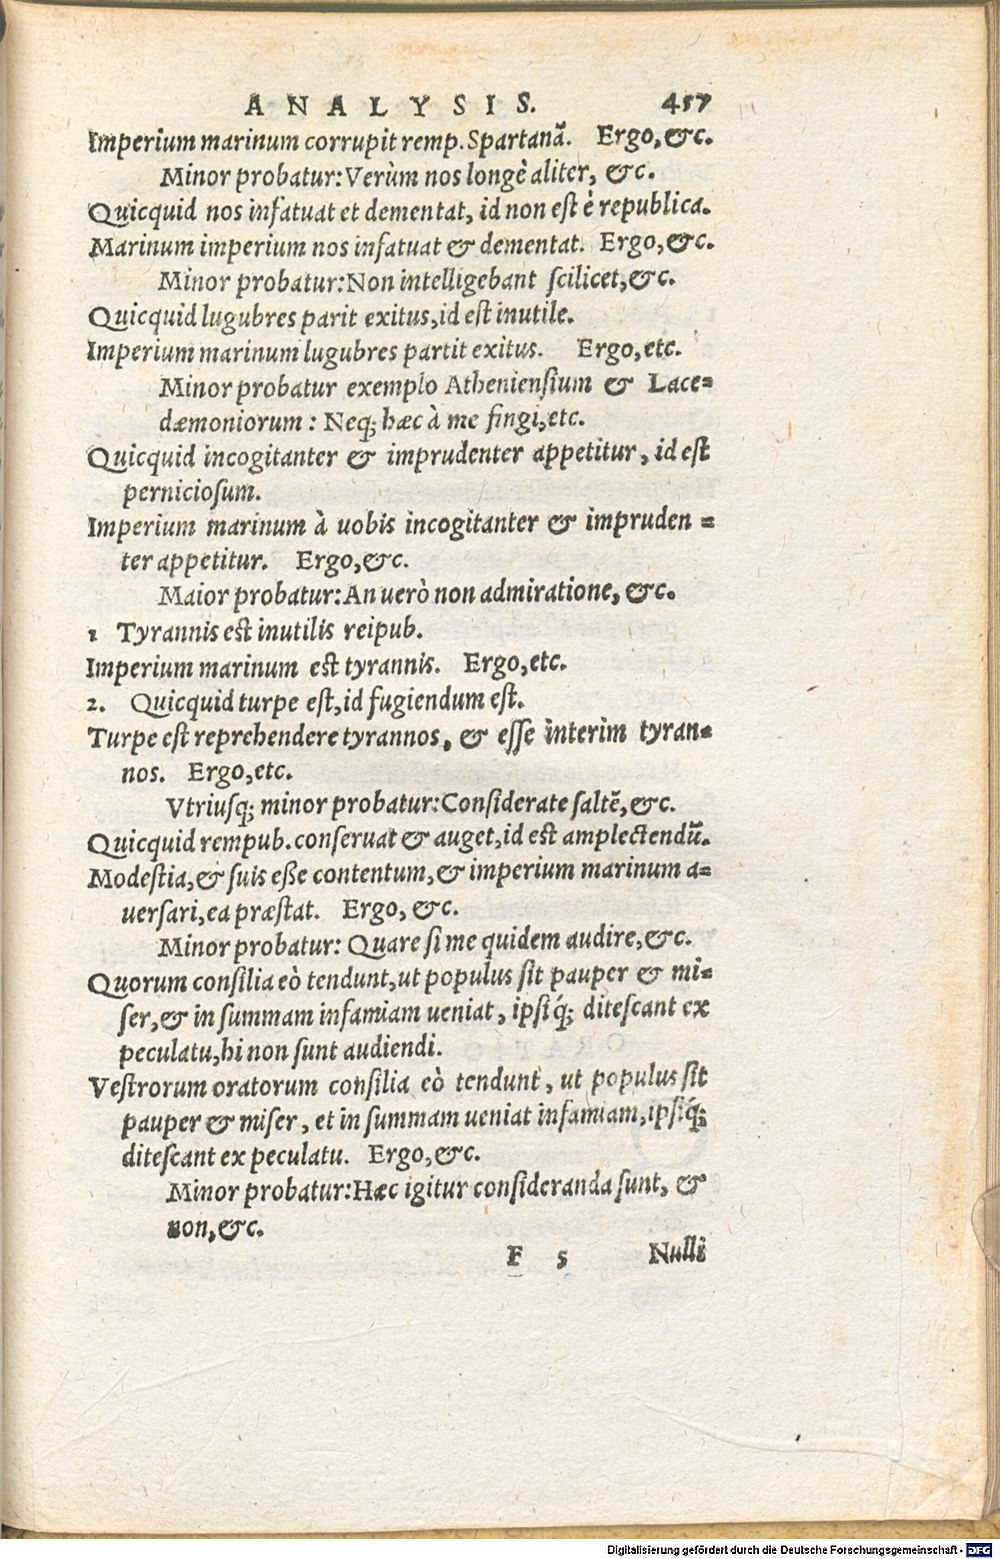 ANALYSIS. 457
Imperium marinum corrupit remp. Spartanā. Ergo, &c.
Minor probatur: Verùm nos longè aliter, &c.
Quicquid nos infatuat et dementat, id non est è republica.
Marinum imperium nos infatuat & dementat. Ergo, &c.
Minor probatur: Non intelligebant scilicet, &c.
Quicquid lugubres parit exitus, id est inutile.
Imperium marinum lugubres partit exitus. Ergo, etc.
Minor probatur exemplo Atheniensium & Lace=
dæmoniorum: Neq; hæc à me fingi, etc.
Quicquid incogitanter & imprudenter appetitur, id est
perniciosum.
Imperium marinum à uobis incogitanter & impruden=
ter appetitur. Ergo, &c.
Maior probatur: An uerò non admiratione, &c.
1 Tyrannis est inutilis reipub.
Imperium marinum est tyrannis. Ergo, etc.
2. Quicquid turpe est, id fugiendum est.
Turpe est reprehendere tyrannos, & esse interim tyran=
nos. Ergo, etc.
Vtriusq; minor probatur: Considerate saltē, &c.
Quicquid rempub. conseruat & auget, id est amplectendū.
Modestia, & suis eße contentum, & imperium marinum a=
uersari, ea præstat. Ergo, &c.
Minor probatur: Quare si me quidem audire, &c.
Quorum consilia eò tendunt, ut populus sit pauper & mi=
ser, & in summam infamiam ueniat, ipsiq́; ditescant ex
peculatu, hi non sunt audiendi.
Vestrorum oratorum consilia eò tendunt, ut populus sit
pauper & miser, et in summam ueniat infamiam, ipsiq́;
ditescant ex peculatu. Ergo, &c.
Minor probatur: Hæc igitur consideranda sunt, &
non, &c.
F 5 Nulli
Digitalisierung gefördert durch die Deutsche Forschungsgemeinschaft - DFG